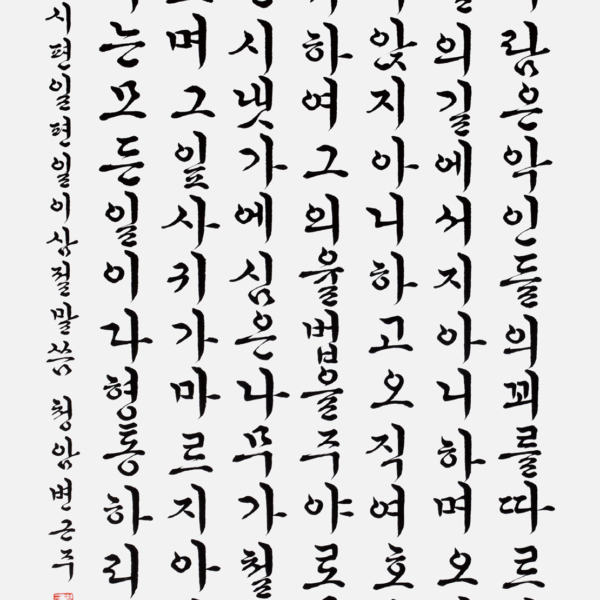 람은악인들의꾀를따르
의길에서지아니하며오
앉지아니하고오직여호
하여그의율법을주야로
시냇가에심은나무가철
며그잎사귀가마르지아
는모든일이다형통하리
시편일편일이삼절말씀 청암변근주